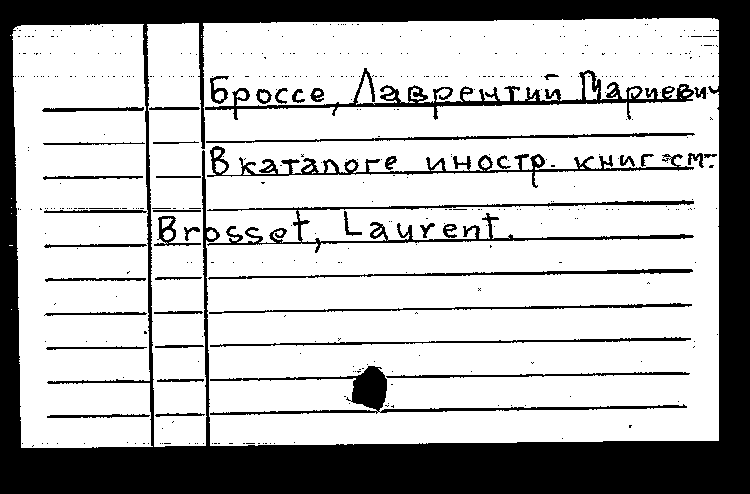 Броссе, Лаврентий Мариевич
В каталоге иностр. книг см.
Brosset, Laurent.